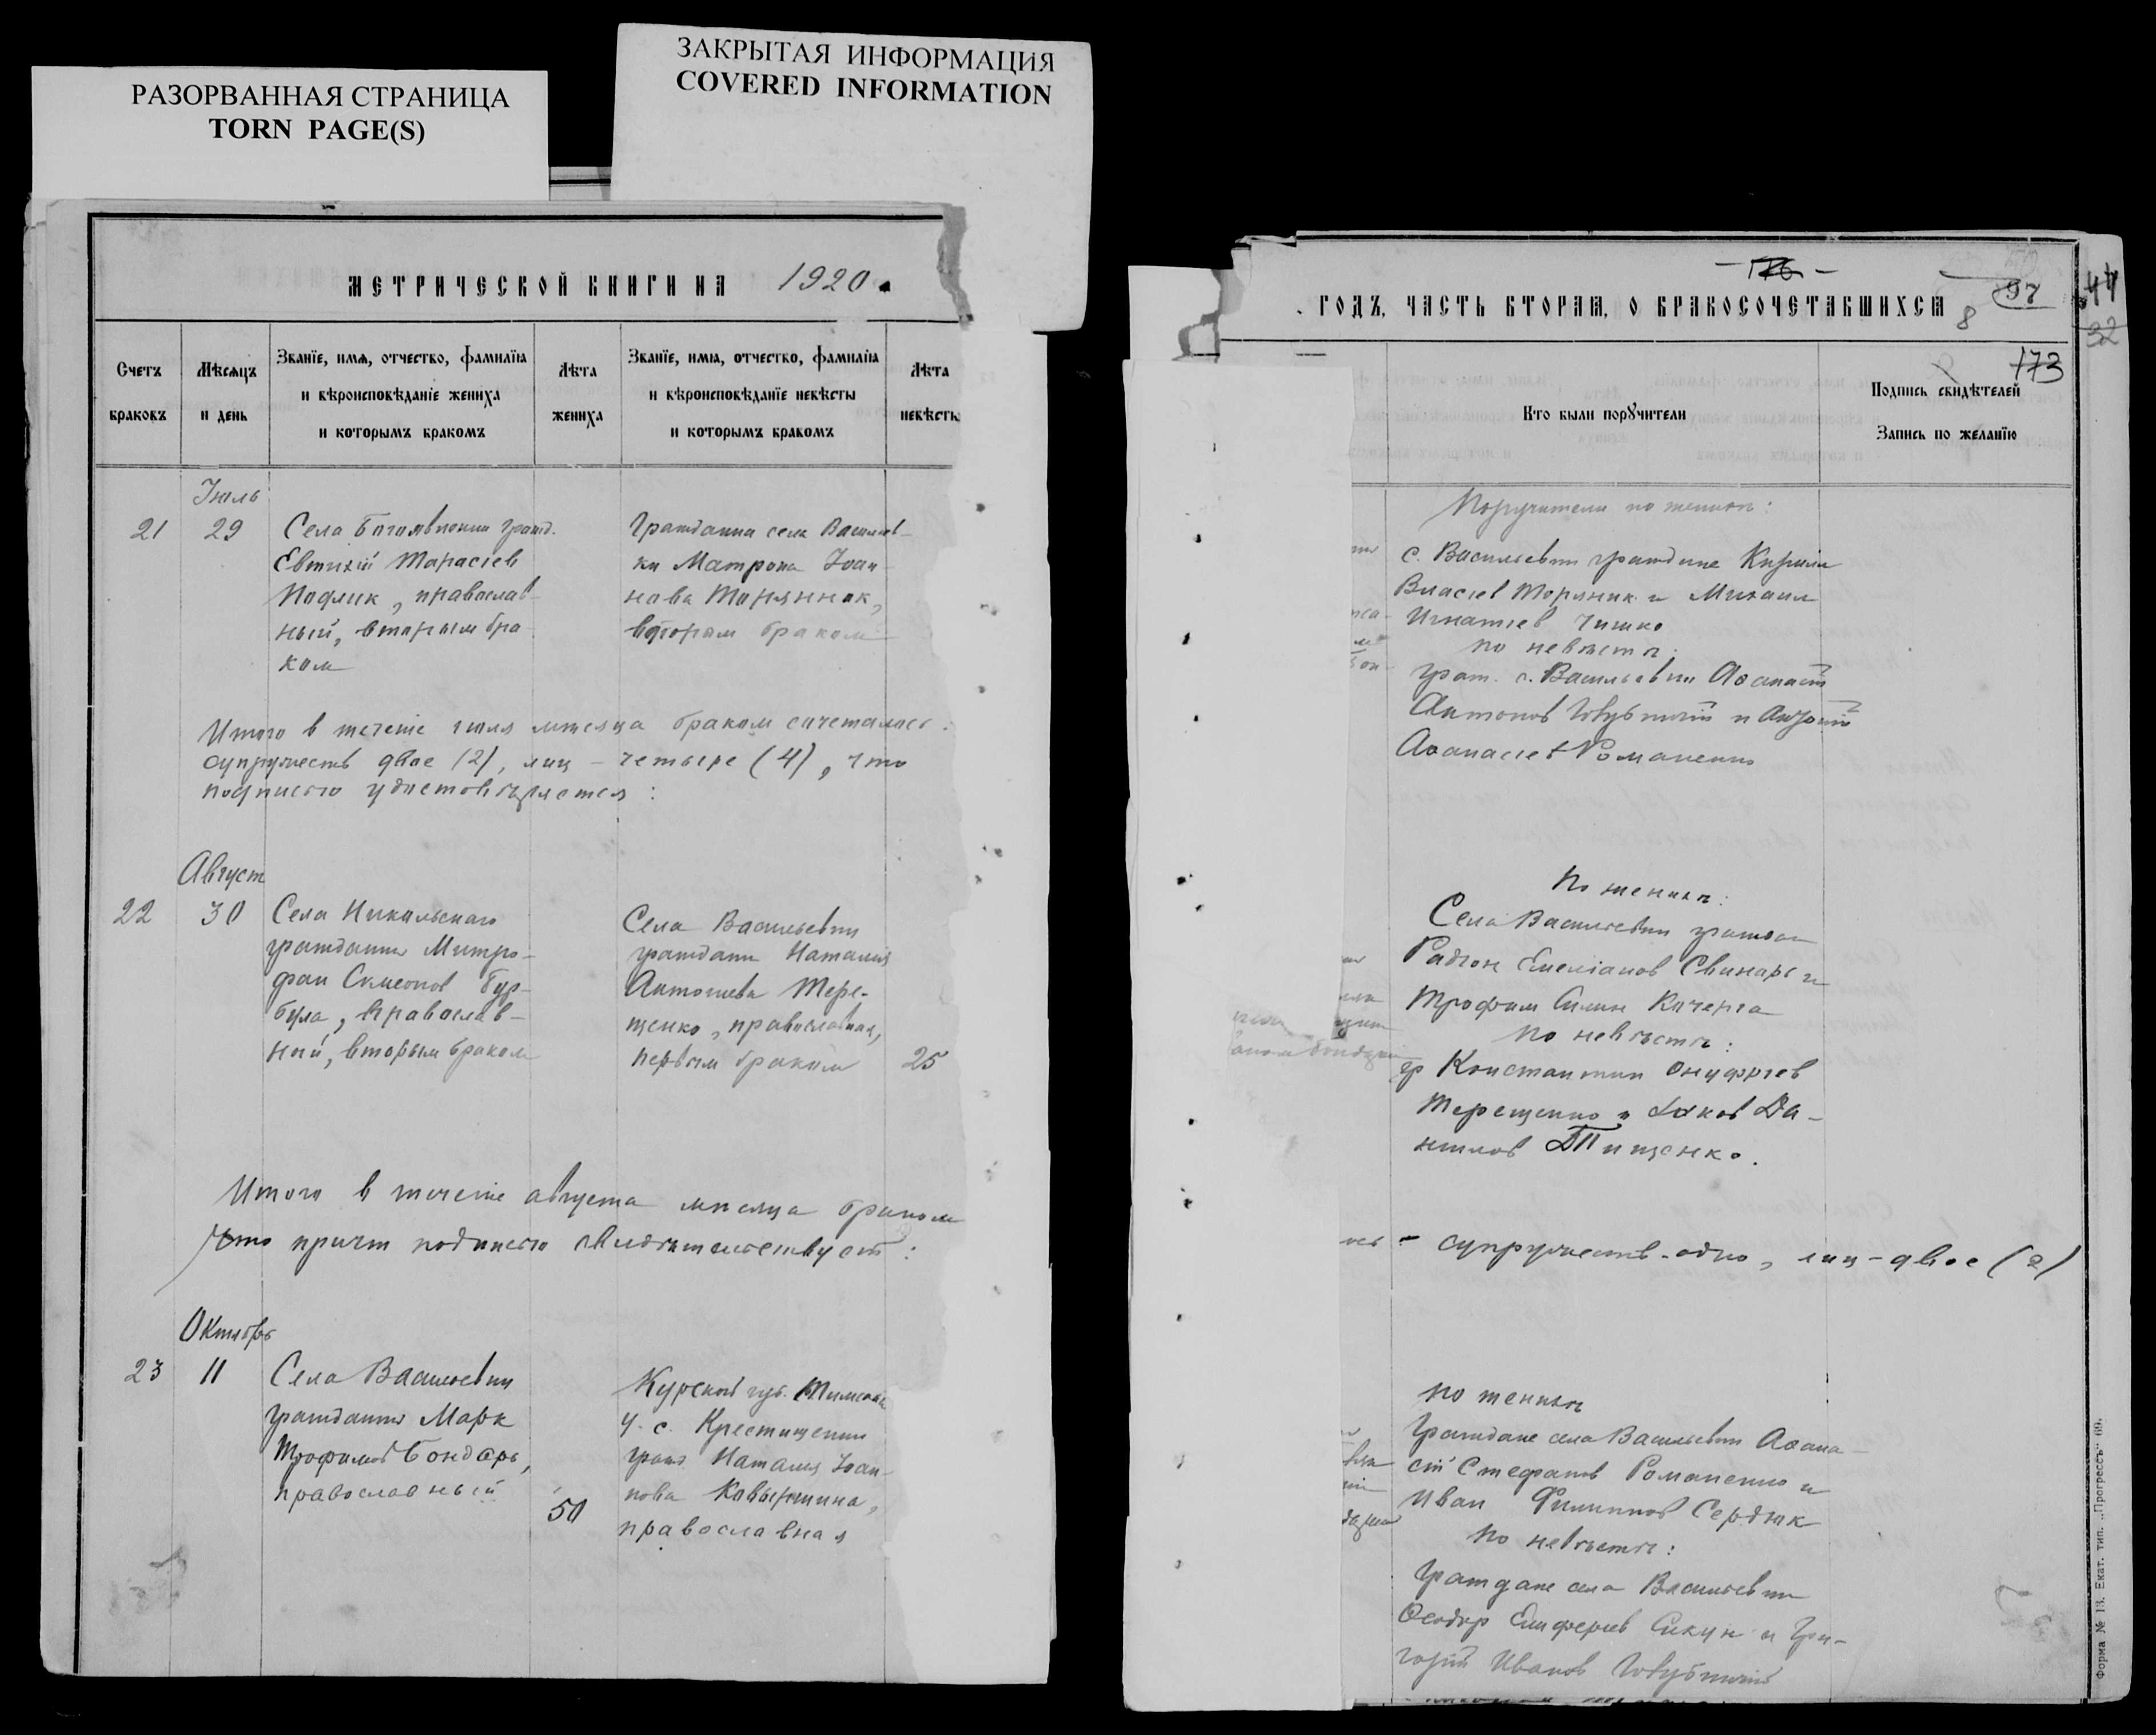 РАЗОРВАННАЯ СТРАНИЦА
TORN PAGE(S)
ЗАКРЫТАЯ ИНФОРМАЦИЯ
COVERED INFORMATION
МЕТРИЧЕСКОЙ КНИГИ НА 1920
Счетъ браковъ
Мѣсяцъ и день
Званїе, имя, отчество, фамилїя
и вѣроисповѣданїе жениха
и которымъ бракомъ
Лѣта жениха
Званїе, имя, отчество, фамилїя
и вѣроисповѣданїе невѣсты
и которымъ бракомъ
Лѣта невѣсты
Іюль
21 29
Села Богоявленки гражд.
Евтихій Тарасіев
православ-
ный, вторым бра-
ком
Гражданка села Васильев-
ки Матрона Іоан-
нова Торяннак,
вторым браком
Итого в теченіе іюля мѣсяца браком сочеталось:
супружеств двое (2), лиц - четыре (4), что
подписью удостовѣряется:
Август
22 30
Села Никольскаго
гражданин Митро-
фан Симеонов Бур-
була, православ-
ный, вторым браком
Села Васильевки
граждан. Наталія
Антоніева Тере-
щенко, православная,
первым браком
25
Итого в теченіе августа мѣсяца браком
что причт подписью свидѣтельствует:
Октябрь
23 11
Села Васильевки
гражданин Марк
Трофимов Бондарь,
православный
50
Курской губ. Тимскаго
у. с. Крестищенки
гражд. Наталія Іоан-
нова
православная
176
ГОДЪ, ЧАСТЬ ВТОРАЯ, О БРАКОСОЧЕТАВШИХСЯ
8
97
44
32
173
Кто были порꙋчители
Подпись свидѣтелей
Запись по желанїю
Поручители по женихѣ:
с. Васильевки граждане Кирилл
Власіев Торяник и Михаил
Игнатіев Чишко
по невѣстѣ:
граж. с. Васильевки Аѳанасій
Антонов Голубничій и Антоній
Аѳанасіев Романенко
По женихѣ:
Села Васильевки граждан
Радіон Емеліанов Свинарь и
Трофим Силин Кочерга
по невѣстѣ:
гр Константин Онуфріев
Терещенко и Яков Да-
нилов Тищенко.
супружеств - одно, лиц - двое (2)
по женихѣ
Граждане села Васильевки Аѳана-
сій Стефанов Романенко и
Иван Филиппов Сердюк
по невѣстѣ:
Граждане села Васильевки
Ѳеодор Елиферіев Сикун и Гри-
горій Иванов Голубничій
Форма № 13. Екат. тип. „Прогрессъ“ 69.